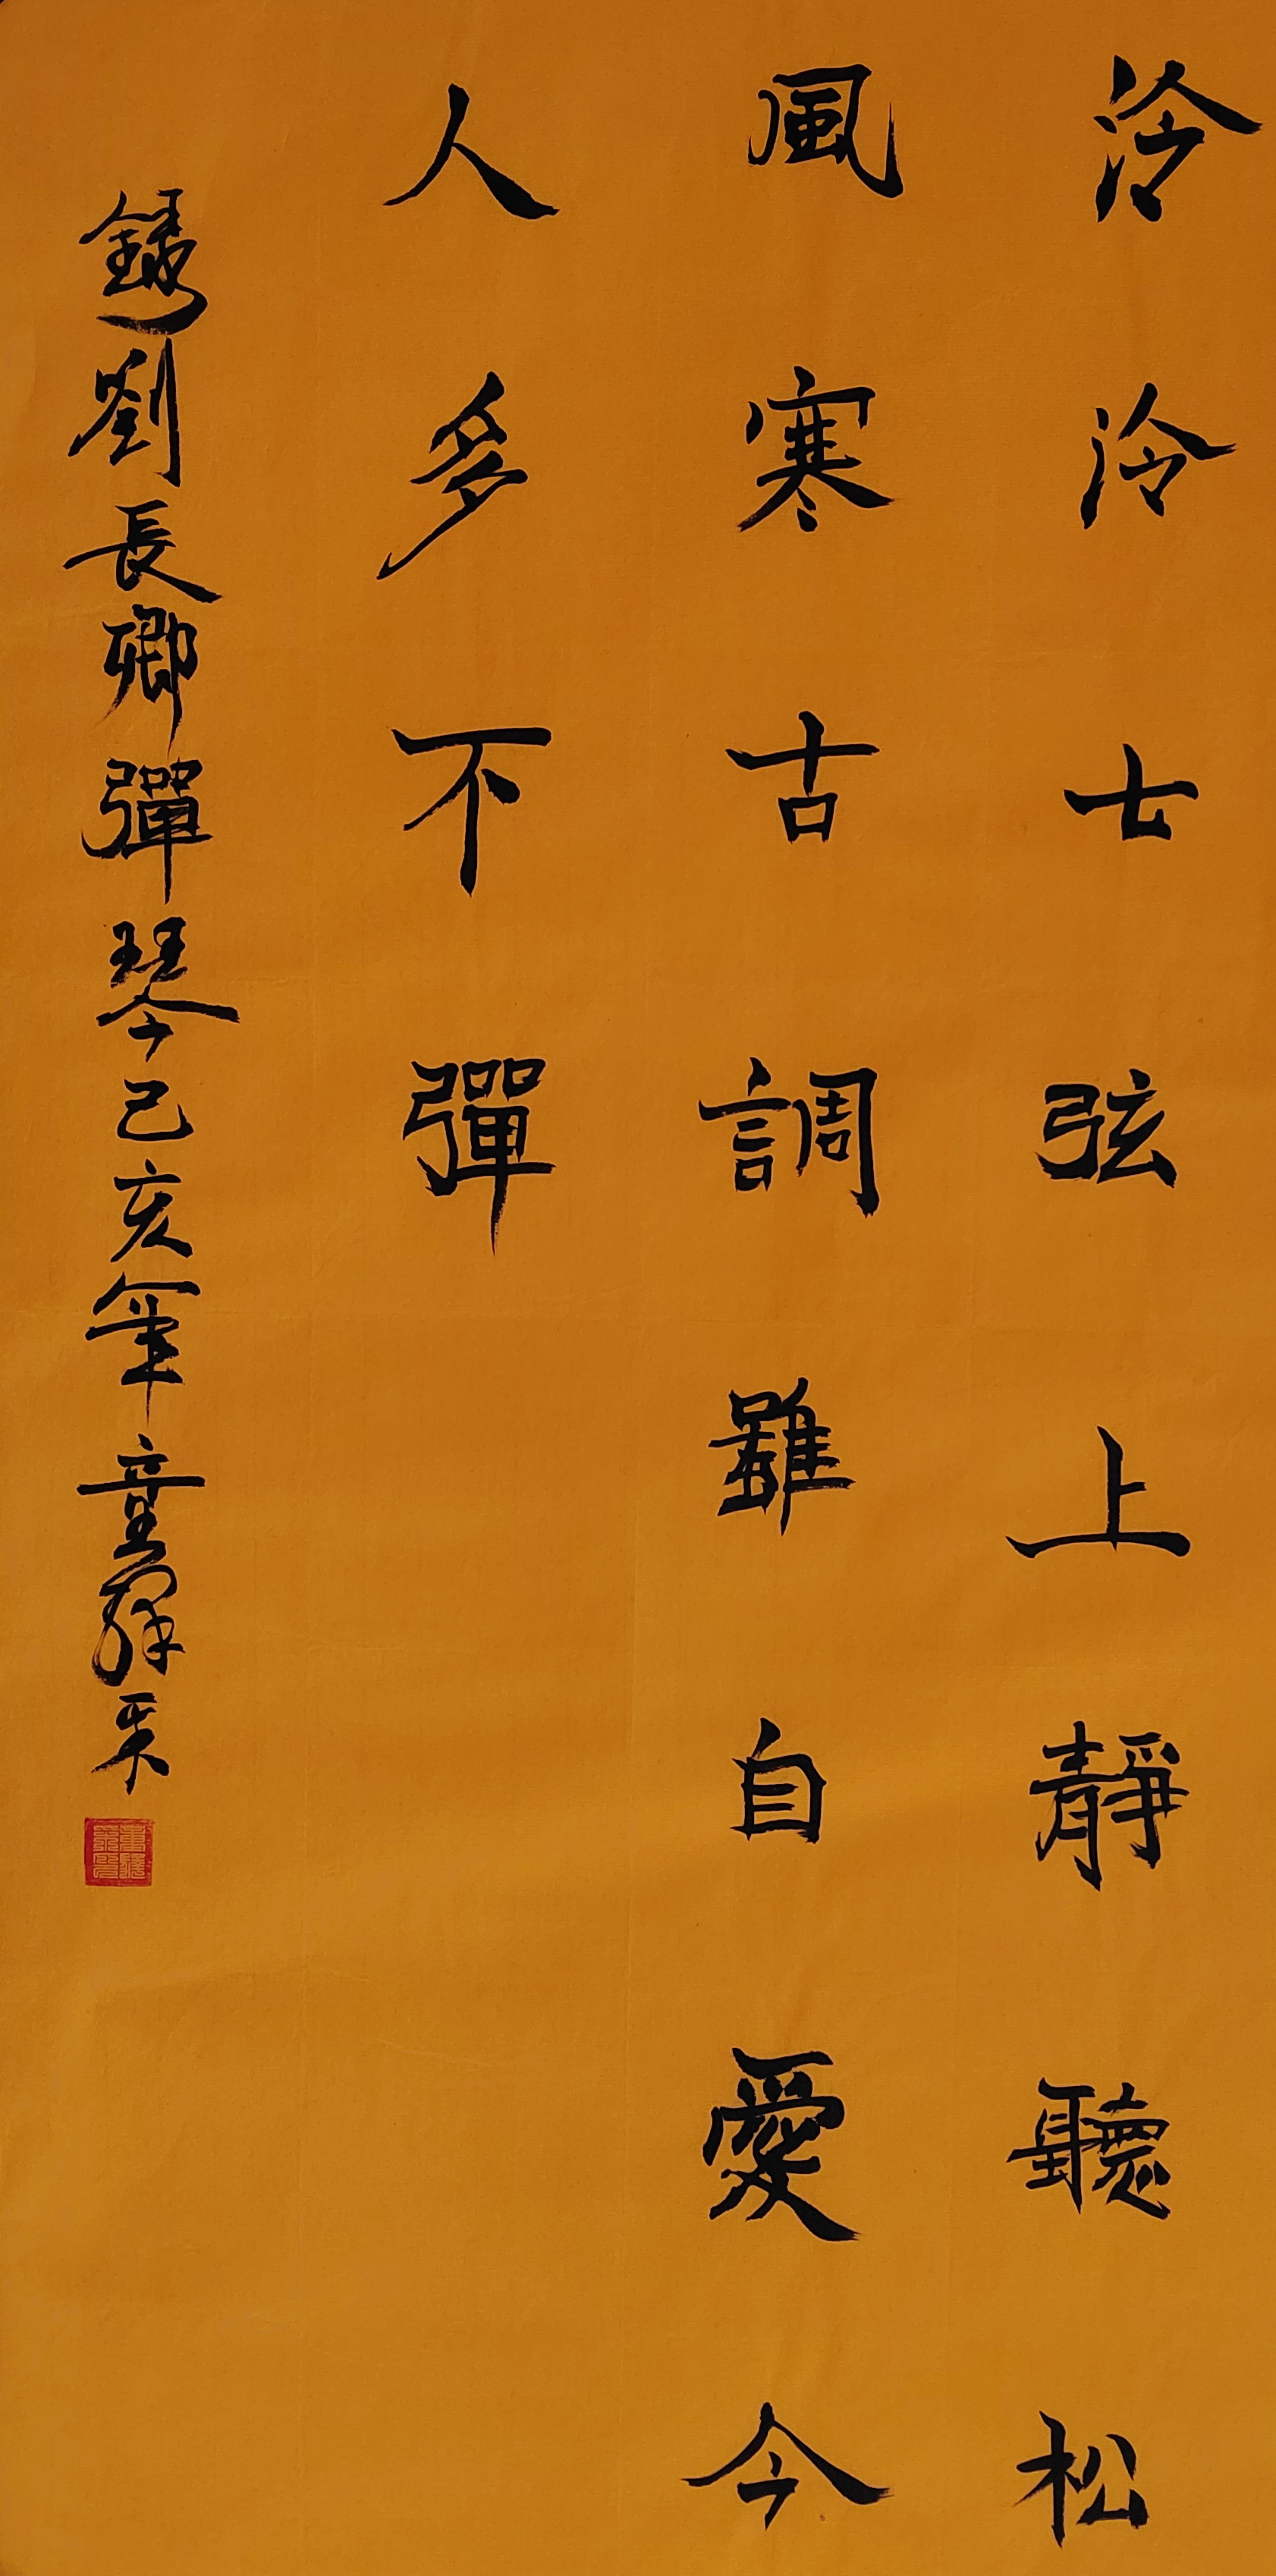 泠泠七弦上靜聽松
風寒古調雖自愛今
人多不彈
錄劉長卿彈琴己亥年童